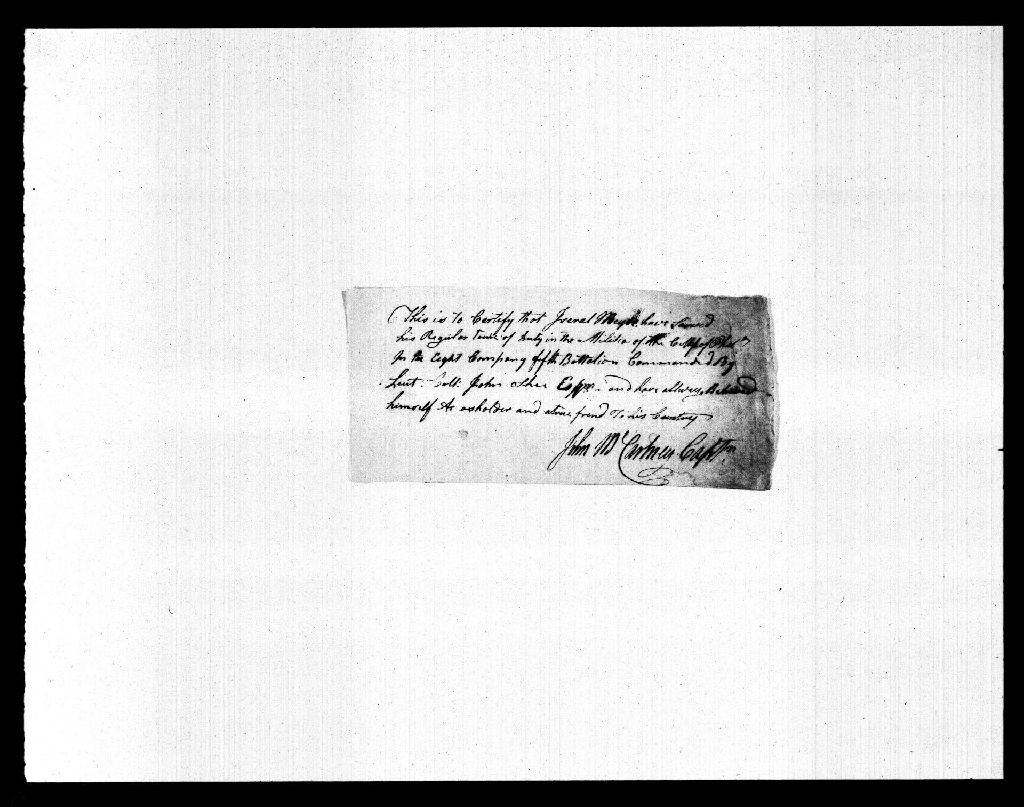 This is To Certify that Jsreal have Sarved
his Regular Tour of duty in the Militia of the Citty of Phila
In the Eight Company fifth Battalion Commanded By
Leut. Coll. John Shee Esqr. and have allways Behaved
himself As asholder and atrue frend To his Cuntry
John Mc Captn